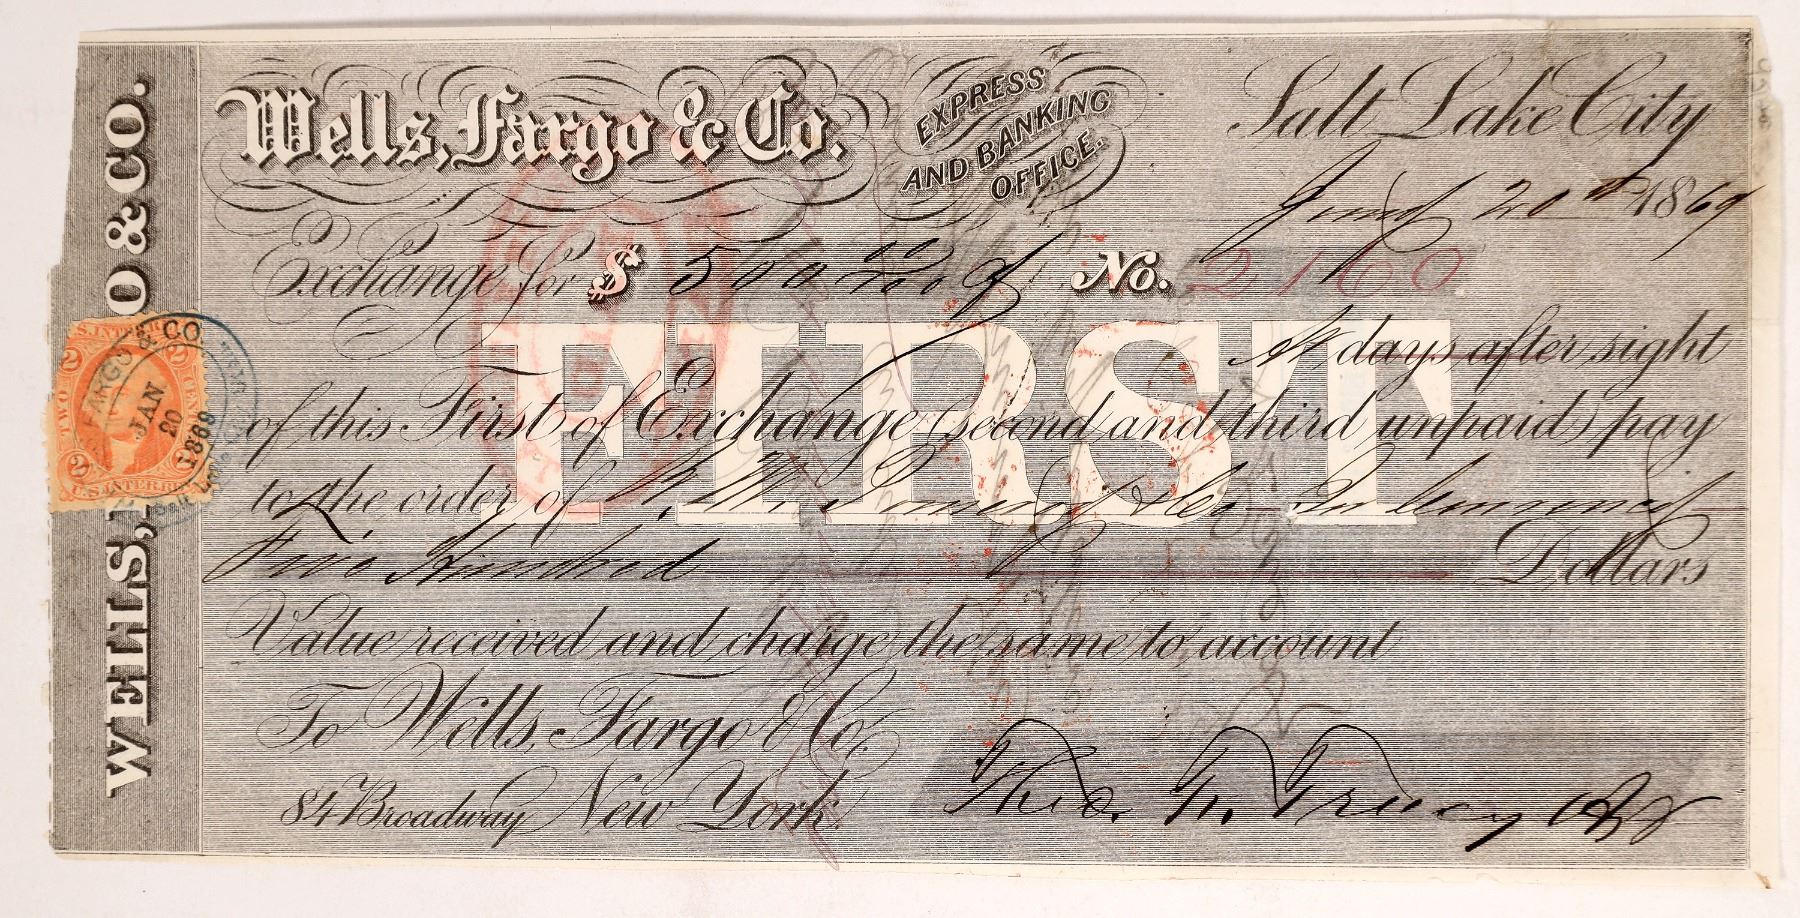 WELLS, O & CO.
Wells, Fargo & Co.
EXPRESS
AND BANKING
OFFICE.
Salt Lake City
20th 1869
Exchange for $ 500 00/100 No. 2160
FIRST
At days after sight
of this First of Exchange (second and third unpaid) pay
to the order of & Co
Five Hundred Dollars
Value received and charge the same to account
To Wells, Fargo & Co.
84 Broadway New York.
Theo. F. Tracy Agt
U.S. INTER. REV.
2 2
TWO CENTS
2 2
U.S. INTER. REV.
FARGO & CO
JAN
20
1869